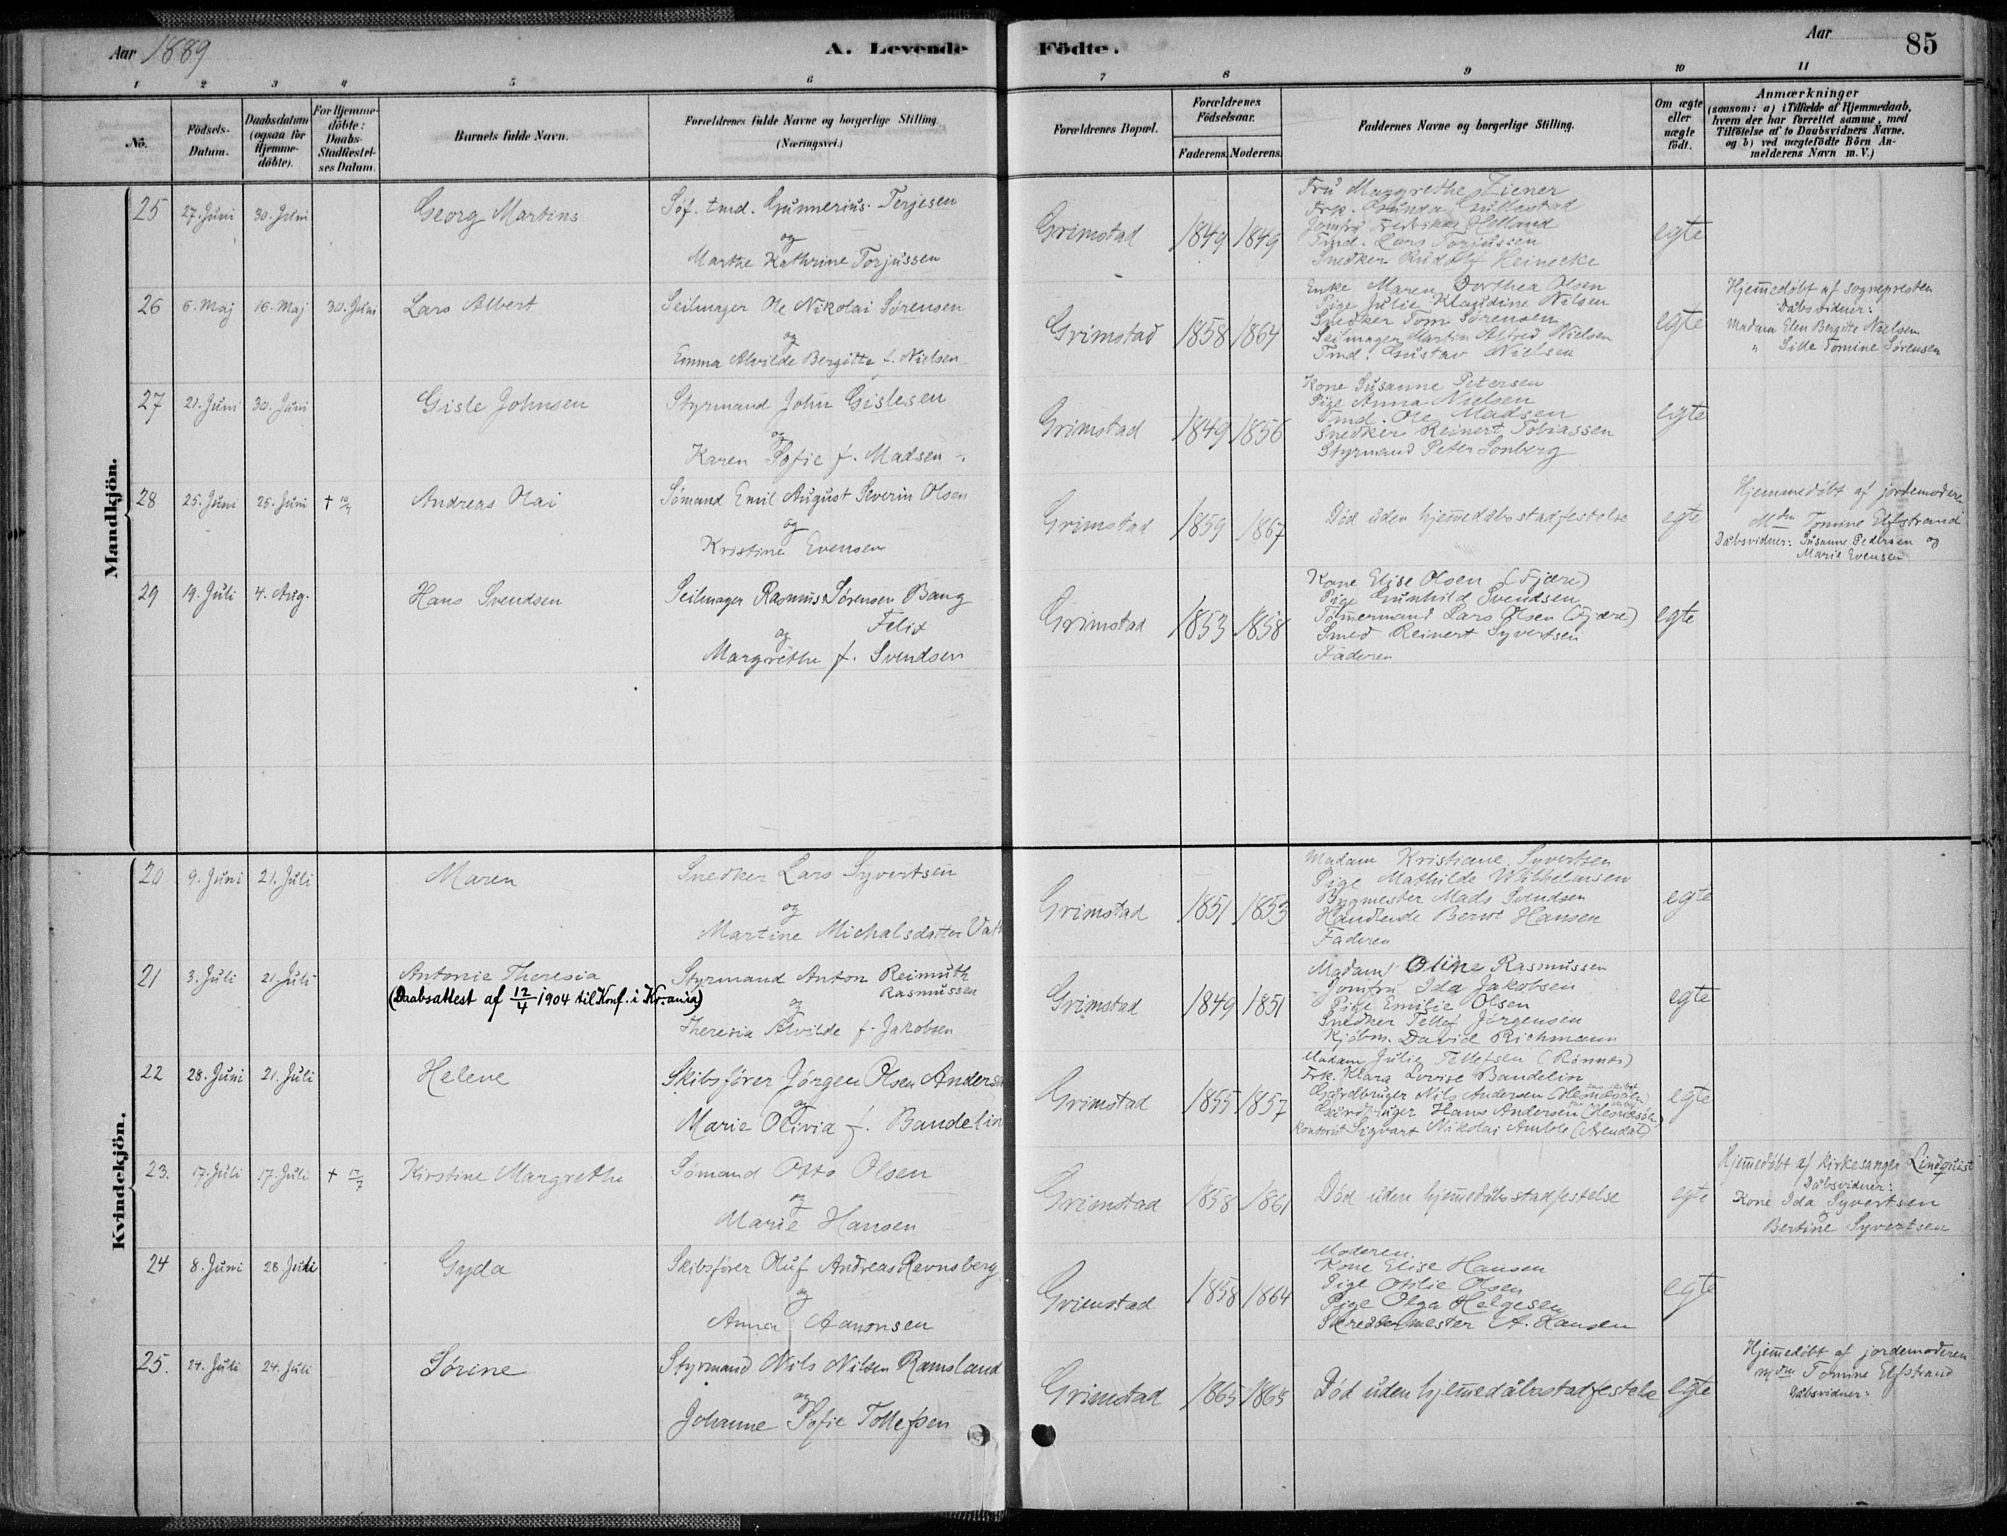 Aar 1889
A. Levende Födte.
Aar
85
1 2 3 4 5 6 7 8 9 10 11
No.
Födsels-Datum.
Daabsdatum (ogsaa for Hjemme-döbte).
For Hjemme-döbte: Daabs-Stadfæstel-ses Datum.
Barnets fulde Navn.
Forældrenes fulde Navne og borgerlige Stilling. (Næringsvei.)
Forældrenes Bopæl.
Forældrenes Födselsaar.
Faderens. Moderens.
Faddernes Navne og borgerlige Stilling.
Om ægte eller uægte födt.
Anmærkninger
(saasom: a) i Tilfælde af Hjemmedaab, hvem der har forrettet samme, med Tilföielse af to Daabsvidners Navne. og b) ved uægtefödte Börn An-melderens Navn m. V.)
Mandkjön.
25 27. Juni 30. Juni Georg Martins
Söf. tmd. Gunnerius Terjesen
og
Marthe Kathrine Torjussen
Grimstad 1849 1849
Fru Margrethe Ziener
Frk.
Jomfru Helland
Tmd. Lars Torjussen
Snedker Rudolf Heinecke
egte
26 6. Maj 16. Maj 30. Juni Lars Albert
Seilmager Ole Nikolai Sørensen
og
Emma Alvilde Bergitte f. Nielsen
Grimstad 1858 1864
Enke Maren Dorthea Olsen
Pige Julie Klaudine Nilsen
Snedker Tom Sørensen
Seilmager Martin Alfred Nielsen
Tmd. Gustav Nielsen
egte
Hjemedøbt af sognepresten
Dåbsvidner:
Madam Elen Bergitte Nielsen
" Sille Tomine Sørensen
27 21. Juni 30. Juni Gisle Johnsen
Styrmand John Gislesen
og
Karen Sofie f. Madsen
Grimstad 1849 1856
Kone Susanne Petersen
Pige Anna Nielsen
Tmd. Ole Madsen
Snedker Reinert Tobiassen
Styrmand Peter Sonberg
egte
28 25. Juni 25. Juni Andreas Olai
Sømand Emil August Severin Olsen
og
Kristine Evensen
Grimstad 1859 1867
Død uden hjemedåbsstadfestelse
egte
Hjemmedøbt af jordemodere
Mdm Tomine Elfstrand
Dåbsvidner: Susanne Pedersen og
Marie Evensen
29 19. Juli 4. Aug. Hans Svendsen
Seilmager Rasmus Sørensen Bang
Felix
og
Margrethe f. Svendsen
Grimstad 1853 1858
Kone Elise Olsen (Fjære)
Pige Gunhild Svendsen
Tømermand Lars Olsen (Fjære)
Smed Reinert Syvertsen
Faderen
egte
Kvindekjön.
20 9. Juni 21. Juli Maren
Snedker Lars Syvertsen
og
Martine Michalsdatter
Grimstad 1851 1853
Madam Kristiane Syvertsen
Pige Mathilde Wilhelmsen
Bygmester Mads Svendsen
Handlende Bernt Hansen
Faderen
egte
21 3. Juli 21. Juli Antonie Theresia
(Daabsattest af 12/4 1904 til Konf. i Krania)
Styrmand Anton Reimuth
Rasmussen
og
Theresia Alvilde f. Jakobsen
Grimstad 1849 1851
Madam Oline Rasmussen
Jomfru Ida Jakobsen
Pige Emilie Olsen
Snedker Tellef Jørgensen
Kjøbm. David Richmann
egte
22 28. Juni 21. Juli Helene
Skibsfører Jørgen Olsen Andersen
og
Marie Olivia f. Bandelin
Grimstad 1855 1857
Madam Julie Tellefsen (Rønnes)
Frk. Klara Lovise Bandelin
Gårdbruger Nils Andersen (Hesnesøen)
Gårdbruger Hans Andersen (Hesnesøen)
Kontorist Sigvart Nikolai Amble (Arendal)
egte
23. 17. Juli 17. Juli † 17/7 Kirstine Margrethe
Sømand Otto Olsen
og
Marie Hansen
Grimstad 1858 1861
Død uden hjemedåbsstadfestelse
egte
Hjemedøbt af kirkesanger Lindquist
Dåbsvidner:
Kone Ida Syvertsen
Bertine Syvertsen
24 8. Juni 28. Juli Gyda
Skibsfører Oluf Andreas Ravnsberg
og
Anna Aanonsen
Grimstad 1858 1864
Moderen.
Kone Elise Hansen
Pige Otilie Olsen
Pige Olga Helgesen
Skreddermester A. Hansen
egte
25. 24. Juli 24. Juli Sørine
Styrmand Nils Nilsen Ramsland
og
Johanne Sofie Tollefsen
Grimstad 1865 1865
Død uden hjemedåbsstadfestelse
egte
Hjemedøbt af jordemoderen
Mdm Tomine Elfstrand
Dåbsvidner: